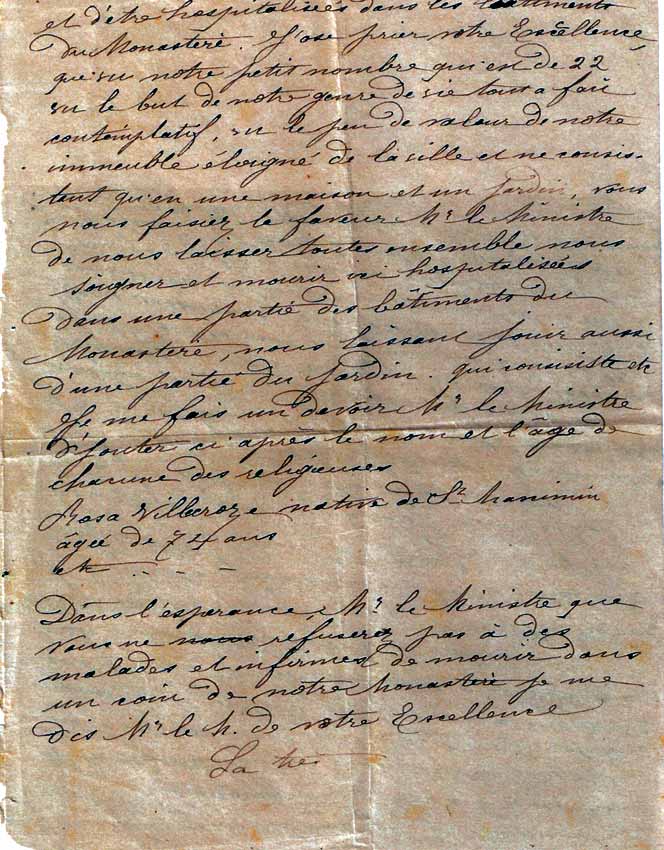 et d'être hospitalisées dans les bâtiments
du Monastère. J'ose prier votre Excellence,
que vu notre petit nombre qui est de 22
vu le but de notre genre de vie tout a fait
contemplatif, vu le peu de valeur de notre
immeuble éloigné de la ville et ne consis-
tant qu'en une maison et un jardin, vous
nous faisiez la faveur Mr le Ministre
de nous laisser toutes ensemble nous
soigner et mourir ici hospitalisées
dans une partie des bâtiments du
Monastère, nous laissant jouir aussi
d'une partie du jardin. qui consiste etc
Je me fais un devoir Mr le Ministre
d'jouter ci après le nom et l'âge de
chacune des religieuses
Rosa Villecroze native de St Maximin
âgée de 74 ans
etc . - - -
Dans l'esperance, Mr le Ministre que
vous ne nous refuserez pas à des
malades et infirmes de mourir dans
un coin de notre monastère je me
dis Mr le M. de votre Excellence
La tres